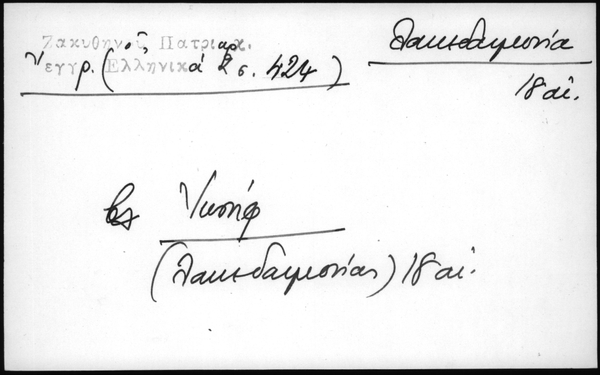 Ζακυθηνοῦ Πατριαρ.
ἔγγρ. (Ἑλληνικά 2 σ. 424)
Λακεδαιμονία
18 αἰ.
βλ Νικηφ
(Λακεδαιμονίας) 18 αἰ.